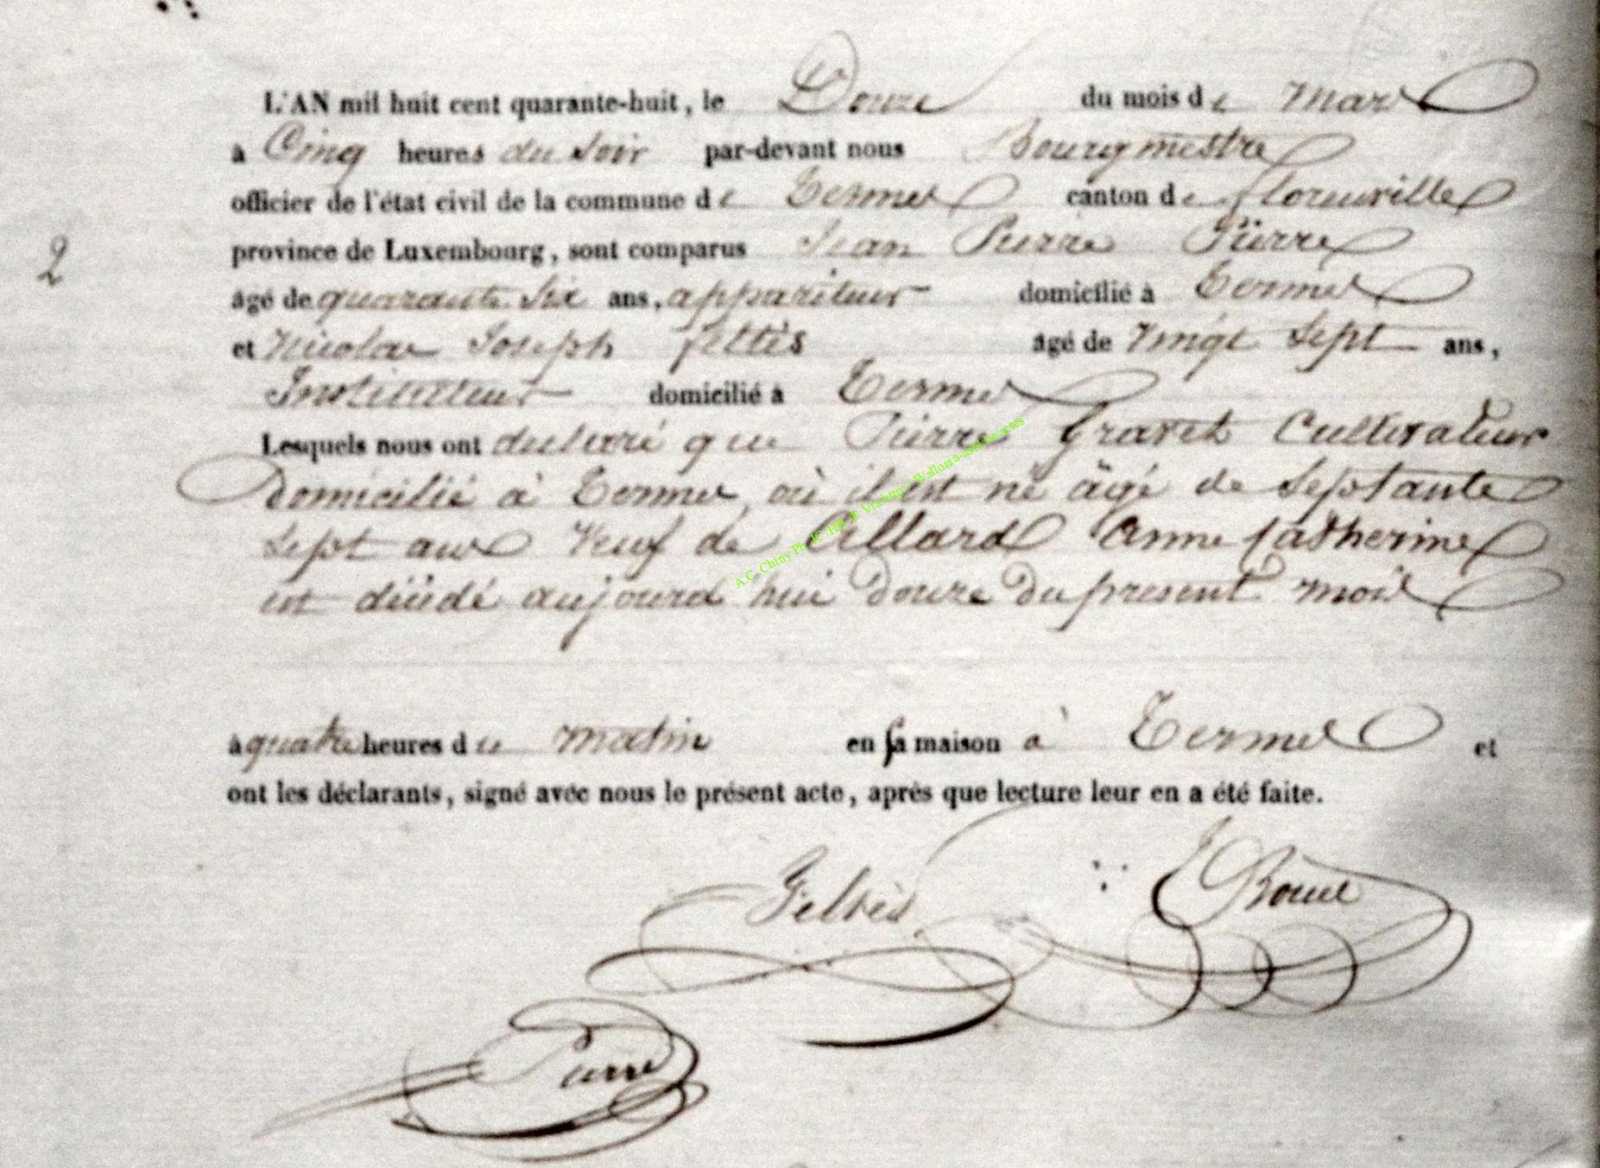 L'AN mil huit cent quarante-huit, le Douze du mois de Mars
à Cinq heures du soir par-devant nous Bourgmestre
officier de l'état civil de la commune de Termes canton de florenville
province de Luxembourg, sont comparus Jean Pierre Pierre
2
âgé de quarante six ans, appariteur domicilié à Termes
et Nicolas Joseph feltès âgé de vingt sept ans,
Instituteur domicilié à Termes
Lesquels nous ont declaré que Pierre Gravet Cultivateur
Domicilié à Termes, où il est né âgé de Septante
sept ans Veuf de Allard Anne Catherine
est décédé aujourd'hui douze du present mois
à quatre heures du matin en sa maison à Termes et
ont les déclarants, signé avec nous le présent acte, après que lecture leur en a été faite.
Feltès
Pierre